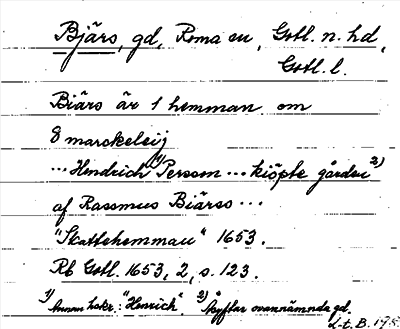 Bjärs, gd, Roma sn, Gotl. n. hd,
Gotl. l.
Biärs är 1 hemman om
8 marckeleij
... Hendrich 1) Persson ... kiöpte gården 2)
af Rassmus Biärss ...
"Skattehemman" 1653.
Rb Gotl. 1653, 2, s. 123.
1) Annan hskr.: "Henrich". 2) Åsyftar ovannämnda gd.
L-t. B. 195